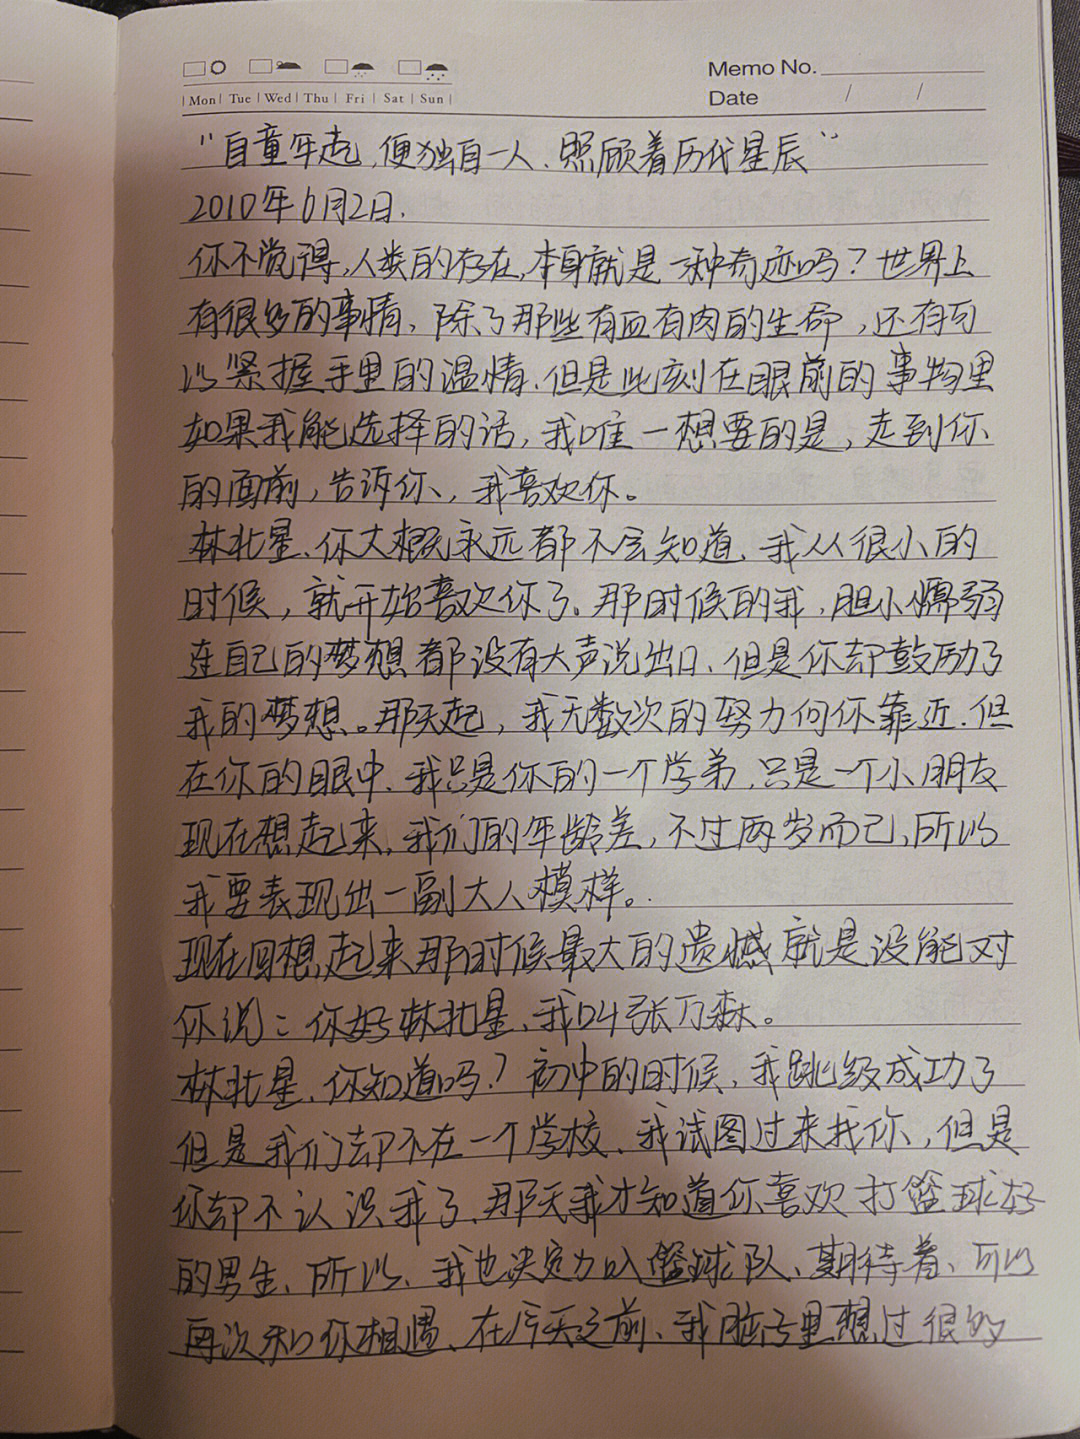 Memo No.
Mon Tue Wed Thu Fri Sat Sun
Date / /
"自童年起,便独自一人、照顾着历代星辰"
2010年6月2日.
你不觉得,人类的存在,本身就是一种奇迹吗?世界上
有很多的事情、除了那些有血有肉的生命,还有可
以紧握手里的温情、但是此刻在眼前的事物里
如果我能选择的话,我唯一想要的是,走到你
的面前,告诉你、,我喜欢你。
林北星、你大概永远都不会知道、我从很小的
时候,就开始喜欢你了。那时候的我,胆小懦弱
连自己的梦想都没有大声说出口、但是你却鼓励了
我的梦想。那天起,我无数次的努力向你靠近.但
在你的眼中、我只是你的一个学弟,只是一个小朋友
现在想起来,我们的年龄差,不过两岁而已、所以
我要表现出一副大人模样。
现在回想起来那时候最大的遗憾就是没能对
你说:你好林北星、我叫张万森。
林北星、你知道吗?初中的时候,我跳级成功了
但是我们却不在一个学校、我试图过来找你,但是
你却不认识我了、那天我才知道你喜欢打篮球好
的男生、所以、我也决定加入篮球队、期待着、可以
再次和你相遇、在今天之前、我脑子里想过很多